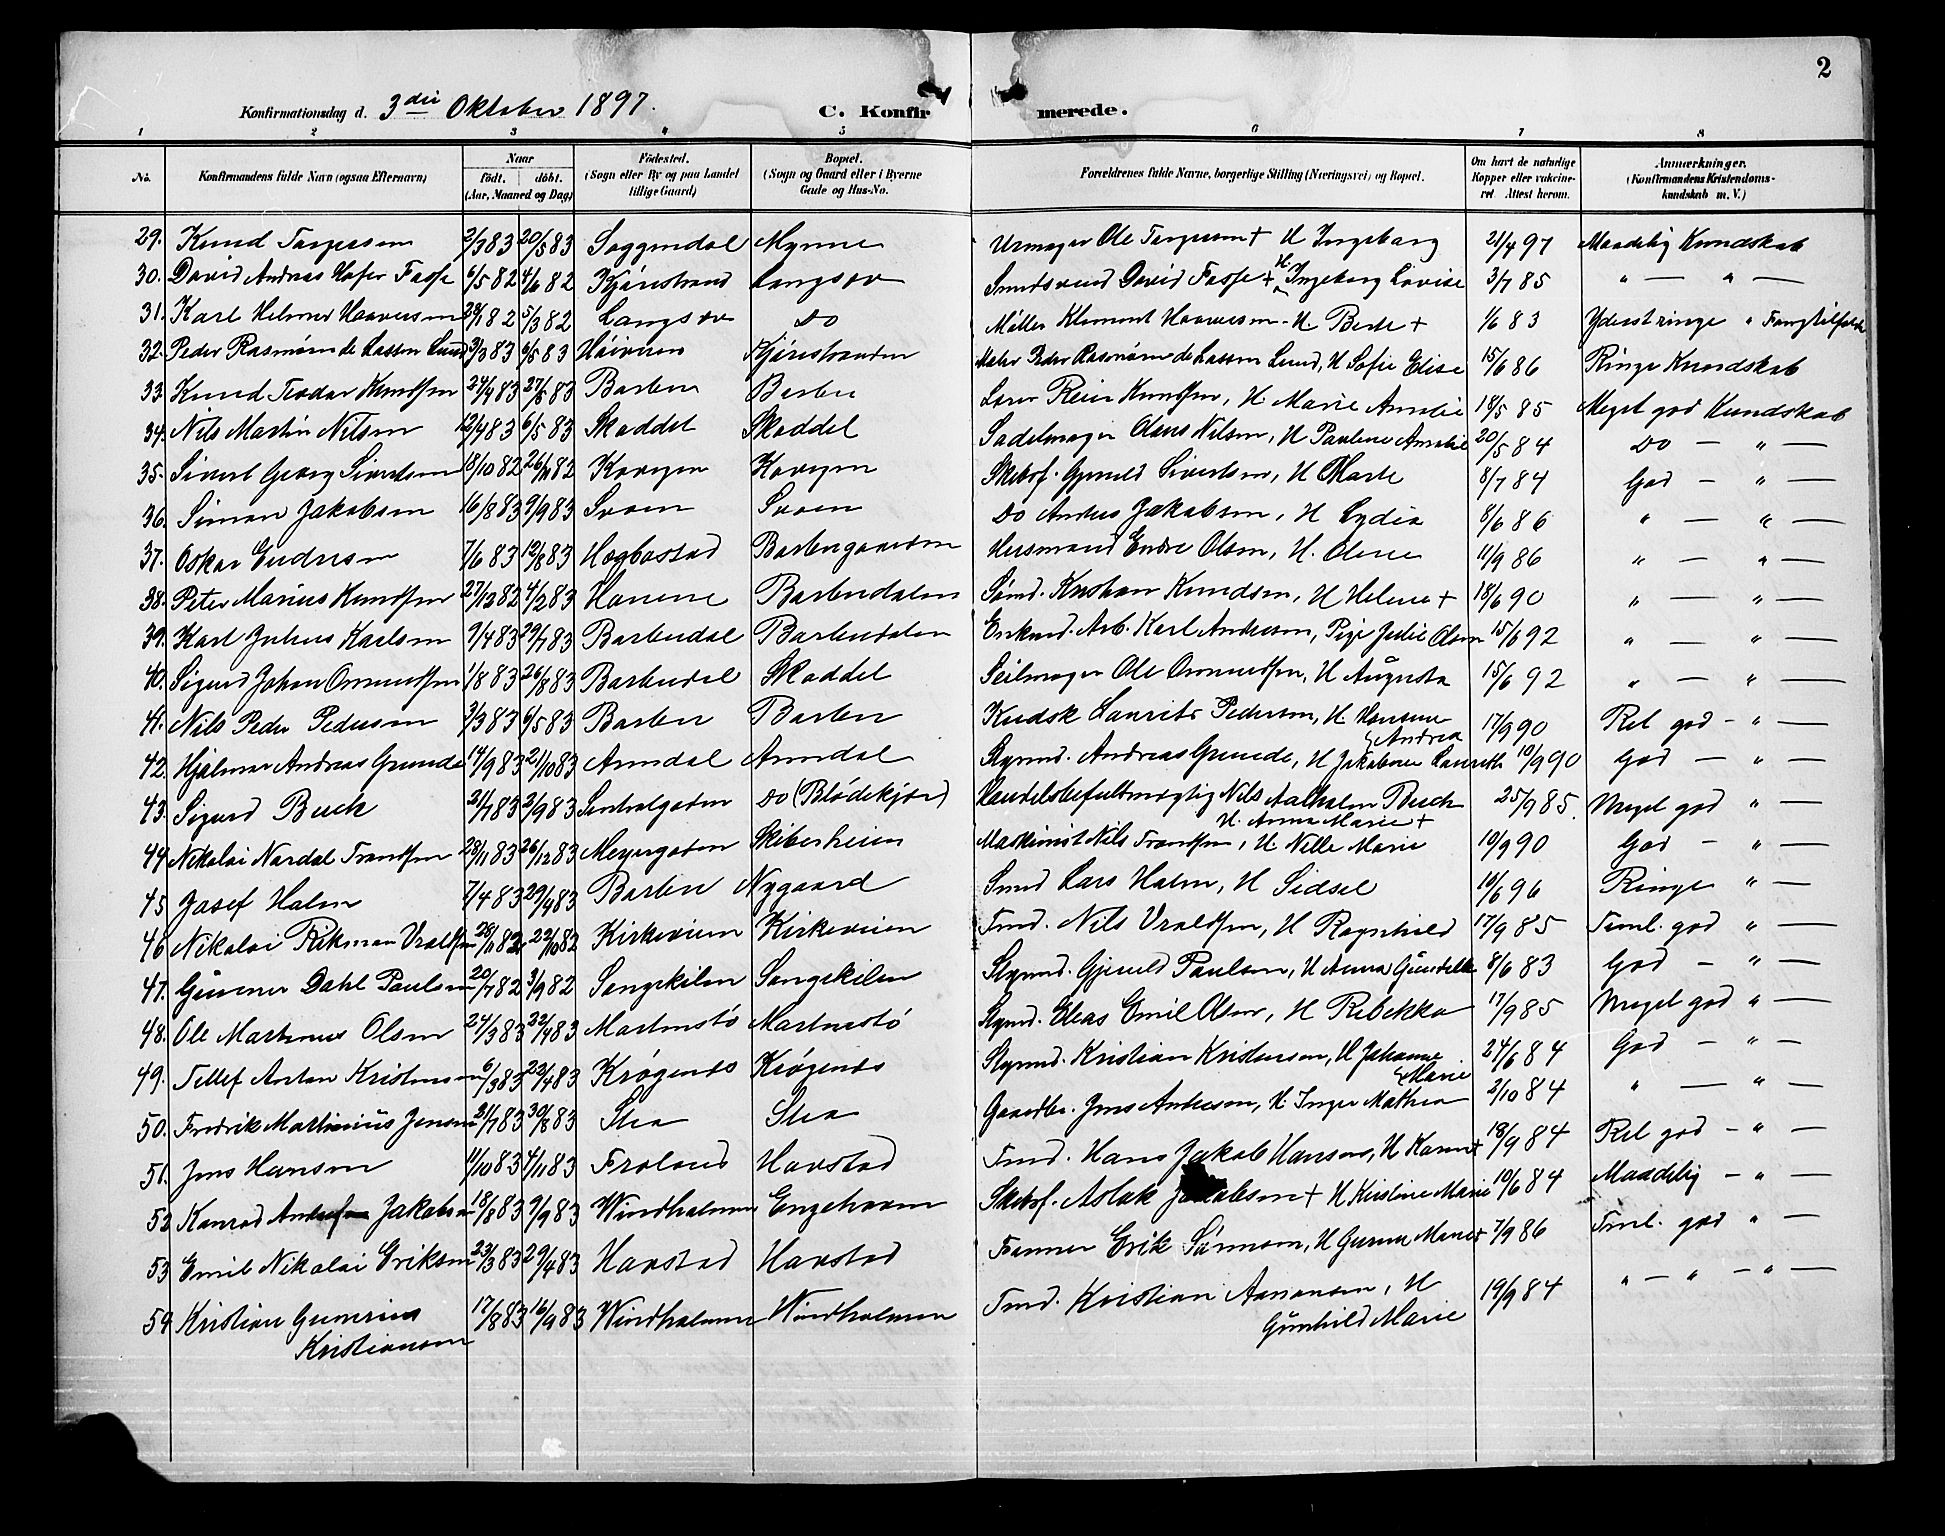 2
Konfirmationsdag d. 3die Oktober 1897. C. Konfirmerede.
1 2 3 4 5 6 7 8
No. Konfirmandens fulde Navn (ogsaa Efternavn) Naar født. døbt. (Aar, Maaned og Dag) Födested. (Sogn eller By og paa Landet tillige Gaard) Bopæl. (Sogn og Gaard eller i Byerne Gade og Hus-No. Forældrenes fulde Navne, borgerlige Stilling (Næringsvei) og Bopæl. Om havt de naturlige Kopper eller vakcineret Attest herom. Anmærkninger. (Konfirmandens Kristendomskundskab m. V.)
29. Knud Torgersen 2/3 83 20/5 83 Soggendal Myrene Urmager Ole Torgersen + H Ingeborg 21/4 97 Maadelig Kundskab
30. David Andreas Hofer Fasse 6/5 82 4/6 82 Kjönstrand Langsæv Smedsvend David Fasse + H. Ingeborg Lovise 3/7 85 " — " —
31. Karl Helmer Haaversen 28/1 82 5/3 82 Langsæv Do Møller Klement Haaversen - H Berte + 1/6 83 Yderst ringe "
32. Peder Rasmussen de Lasson Lund 3/3 83 6/5 83 Maler Peder Rasmussen de Lasson Lund, H Sofie Elise 15/6 86 Ringe Kundskab
33. Knud Teodor Knudsen 24/4 83 27/5 83 Barbu Barbu Reier Knudsen, H. Marie Amalie 18/5 85 Meget god Kundskab
34. Nils Martin Nilsen 12/4 83 6/5 83 Skoddel Skoddel Sadelmager Olaus Nilsen, H Pauline Amalie 20/5 84 Do — " —
35. Sivert Georg Sivertsen 18/10 82 26/11 82 Skibsf. Gjeruld Sivertsen, H Marte 8/7 84 God — " —
36. Simon Jakobsen 16/8 83 9/9 83 Svoen Svoen Do Anders Jakobsen, H Lydia 8/6 86 " — " —
37. Oskar Endresen 7/6 83 12/8 83 Hægbostad Barbugaarden Husmand Endre Olsen, H. Oline 11/9 86 " — " —
38. Peter Marius Knudsen 27/12 82 4/2 83 Barbudalen Sømd. Kristian Knudsen, H Helene + 18/6 90 " — " —
39. Karl Julius Karlsen 9/4 83 29/7 83 Barbudal Barbudalen Enkemd. Arb. Karl Andersen, Pige Julie Olsen 15/6 92 " — " —
40. Sigurd Johan Ommundsen 1/8 83 26/8 83 Barbudal Skoddel Seilmager Ole Ommundsen, H Augusta 15/6 92 " — " —
41. Nils Peder Pedersen 3/3 83 6/5 83 Barbu Barbu Kudsk Laurits Pedersen, H. Hansine Andrea 17/9 90 Ret god — " —
42. Hjalmar Andreas Grunde 14/9 83 21/10 83 Arendal Arendal Styrmd. Andreas Grunde, H Jakobine Laurette 10/9 90 God — " —
43. Sigurd Buch 21/7 83 2/9 83 Sentralgaden Do (Blødekjær) Handelsbefuldmægtig Nils Aalholm Buch H. Anna Marie + 25/9 85. Meget god " —
44. Nikolai Nardal Trondsen 28/11 83 26/12 83 Meyergaden Skiberheien Maskinist Nils Trondsen, H. Nille Marie 10/9 90 God — " —
45. Josef Holm 7/4 83 29/4 83 Barbu Nygaard Smed Lars Holm, H Sidsel 10/6 96 Ringe " —
46. Nikolai Rikman Vraldsen 22/10 82 Kirkeveien Kirkeveien Tmd. Nils Vraldsen, H Ragnhild 17/9 85 Teml. god " —
47. Gunner Dahl Paulsen 20/7 82 3/9 82 Songekilen Songekilen Styrmd. Gjeruld Paulsen, H Anna Gunhilde 8/6 83 God — " —
48. Ole Martinus Olsen 24/3 83 22/4 83 Martensø Martensø Styrmd. Elias Emil Olsen, H Rebekka 17/9 85 Meget god " —
49. Tellef Anton Kristensen 6/3 83 22/4 83 Krøgenes Krøgenes Styrmd. Kristian Kristensen, H Johanne Marie 24/6 84 God — " —
50. Fredrik Martinius Jensen 21/7 83 30/8 83 Stea Stea Gaardbr. Jens Andersen, H. Inger Mathea 2/10 84 " — " —
51. Jens Hansen 11/10 83 4/11 83 Froland Havstad Tmd. Hans Jakob Hansen, H Karen + 18/9 84 Ret god — " —
52 Konrad Jakobsen 18/8 83 9/9 83 Windholmen Engehavn Skibsf. Aslak Jakobsen + H Kristine Marie 10/6 84 Maadelig — " —
53 Emil Nikolai Eriksen 23/3 83 29/4 83 Havstad Havstad Tømmer Erik Sørensen, H Gurine Marie + 7/9 86 Teml. god " —
54 Kristian Gunerius Kristiansen 17/8 83 16/9 83 Windholmen Windholmen Tmd. Kristian Aanonsen, H Gunhild Marie 19/9 84 " — " — " —